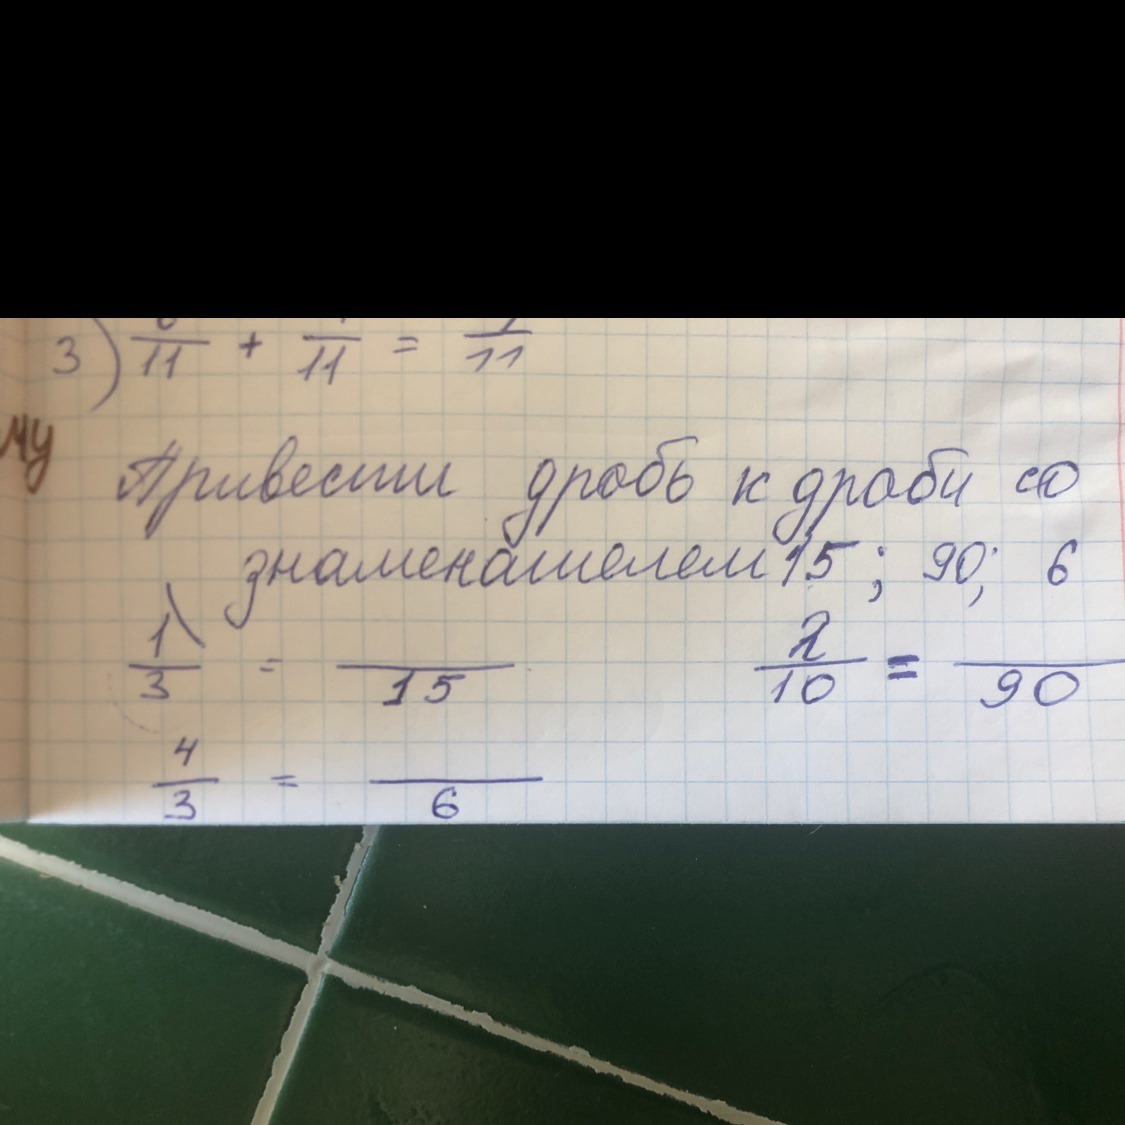 3) /11 + /11 = /11
му
Привести дробь к дроби со
знаменателем 15; 90; 6
1/3 = /15 2/10 = /90
4/3 = /6